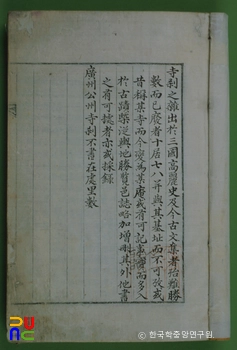 寺刹之雜出於三國高麗史及今古文集者殆難勝
數而已廢者十居七八并與其基址而不可攷或
昔稱某寺而今變為某庵或有可記事實而多入
於古蹟槩從與他勝覽邑誌略加增刪其外他書
之有可據者亦或採錄
廣州公州寺刹不書在處里數
ⓒ 한국학중앙연구원